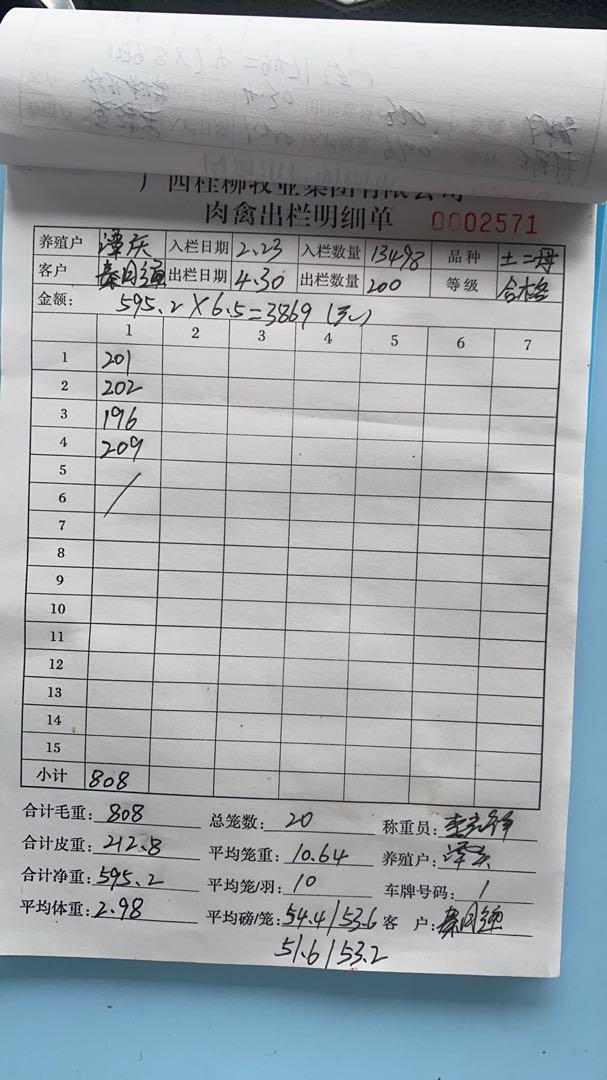 广西桂柳牧业集团有限公司
肉禽出栏明细单 0002571
养殖户 谭庆 入栏日期 2.23 入栏数量 13498 品种 土二母
客户 出栏日期 4.30 出栏数量 200 等级 合格
金额: 595.2×6.5=3869(元)
1 2 3 4 5 6 7
1 201
2 202
3 196
4 209
5
6
7
8
9
10
11
12
13
14
15
小计 808
合计毛重: 808 总笼数: 20 称重员:
合计皮重: 212.8 平均笼重: 10.64 养殖户: 谭庆
合计净重: 595.2 平均笼/羽: 10 车牌号码: 1
平均体重: 2.98 平均磅/笼: 54.4/53.6 客 户:
51.6/53.2